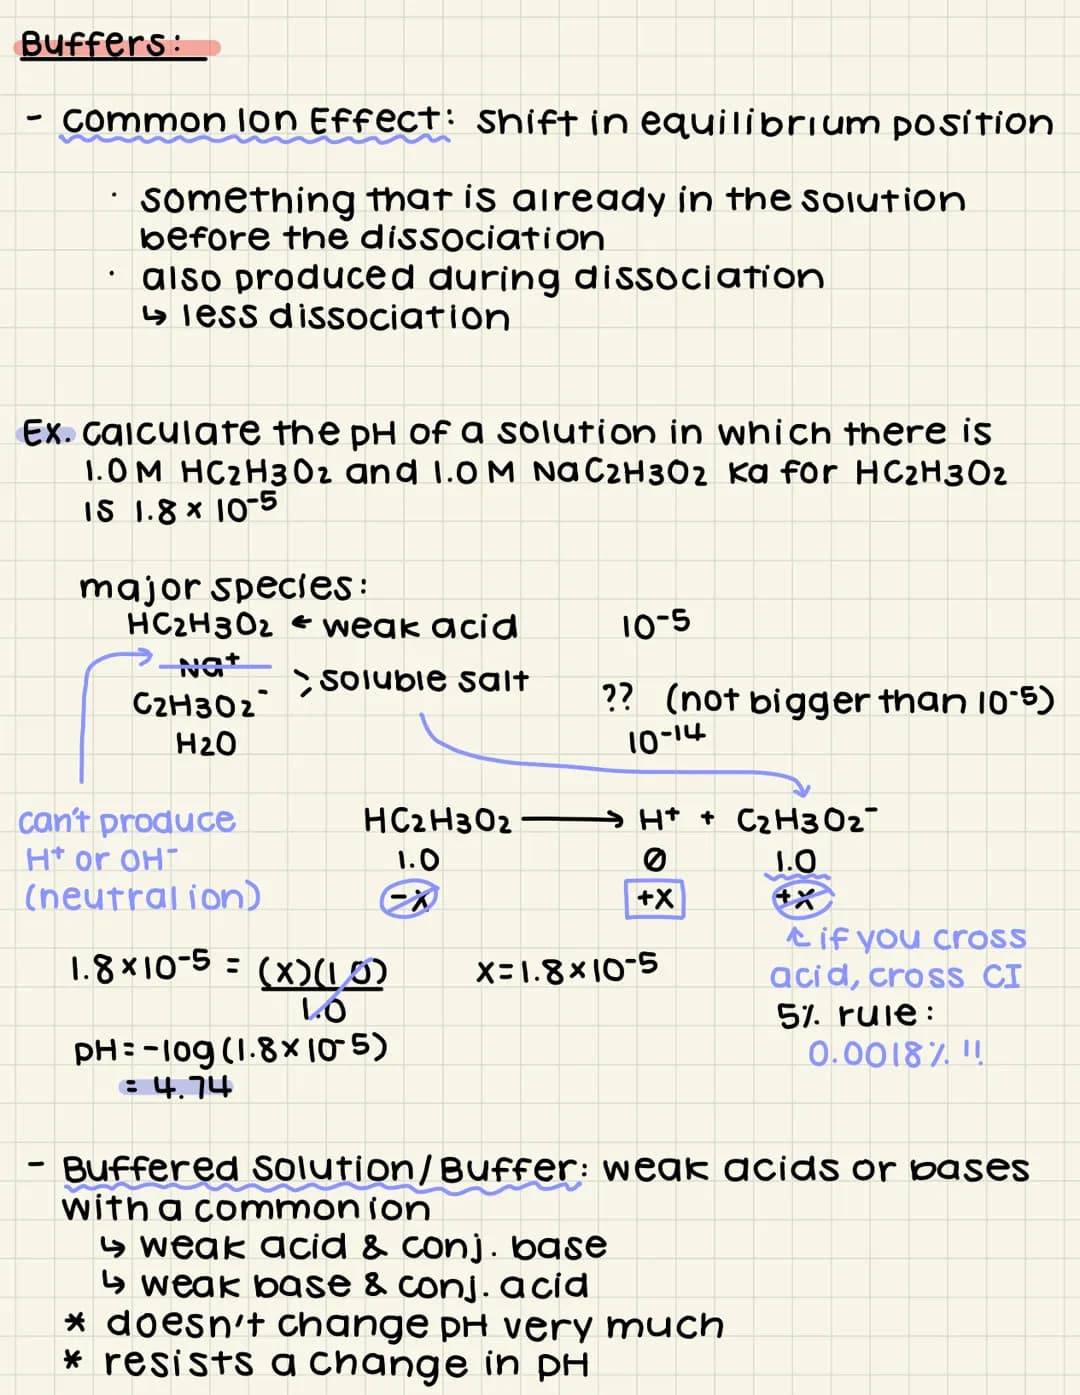 Buffers:
- Common Ion Effect: shift in equilibrium position
· something that is already in the solution
before the dissociation
· also produced during dissociation
↳ less dissociation
Ex. Calculate the pH of a solution in which there is
1.0 M HC2H3O2 and 1.0 M NaC2H3O2 Ka for HC2H3O2
is 1.8 × 10-5
major species:
HC2H3O2 ← weak acid 10-5
Na+
> soluble salt
C2H3O2- ?? (not bigger than 10-5)
H2O 10-14
can't produce
H+ or OH-
(neutral ion)
HC2H3O2 → H+ + C2H3O2-
1.0 0 1.0
-x +x +x
↖ if you cross
acid, cross CI
1.8×10-5 = (x)(1.0) x=1.8×10-5
1.0
5% rule:
0.0018% !!
pH=-log(1.8×10-5)
= 4.74
- Buffered Solution/Buffer: weak acids or bases
with a common ion
↳ weak acid & conj. base
↳ weak base & conj. acid
* doesn't change pH very much
* resists a change in pH